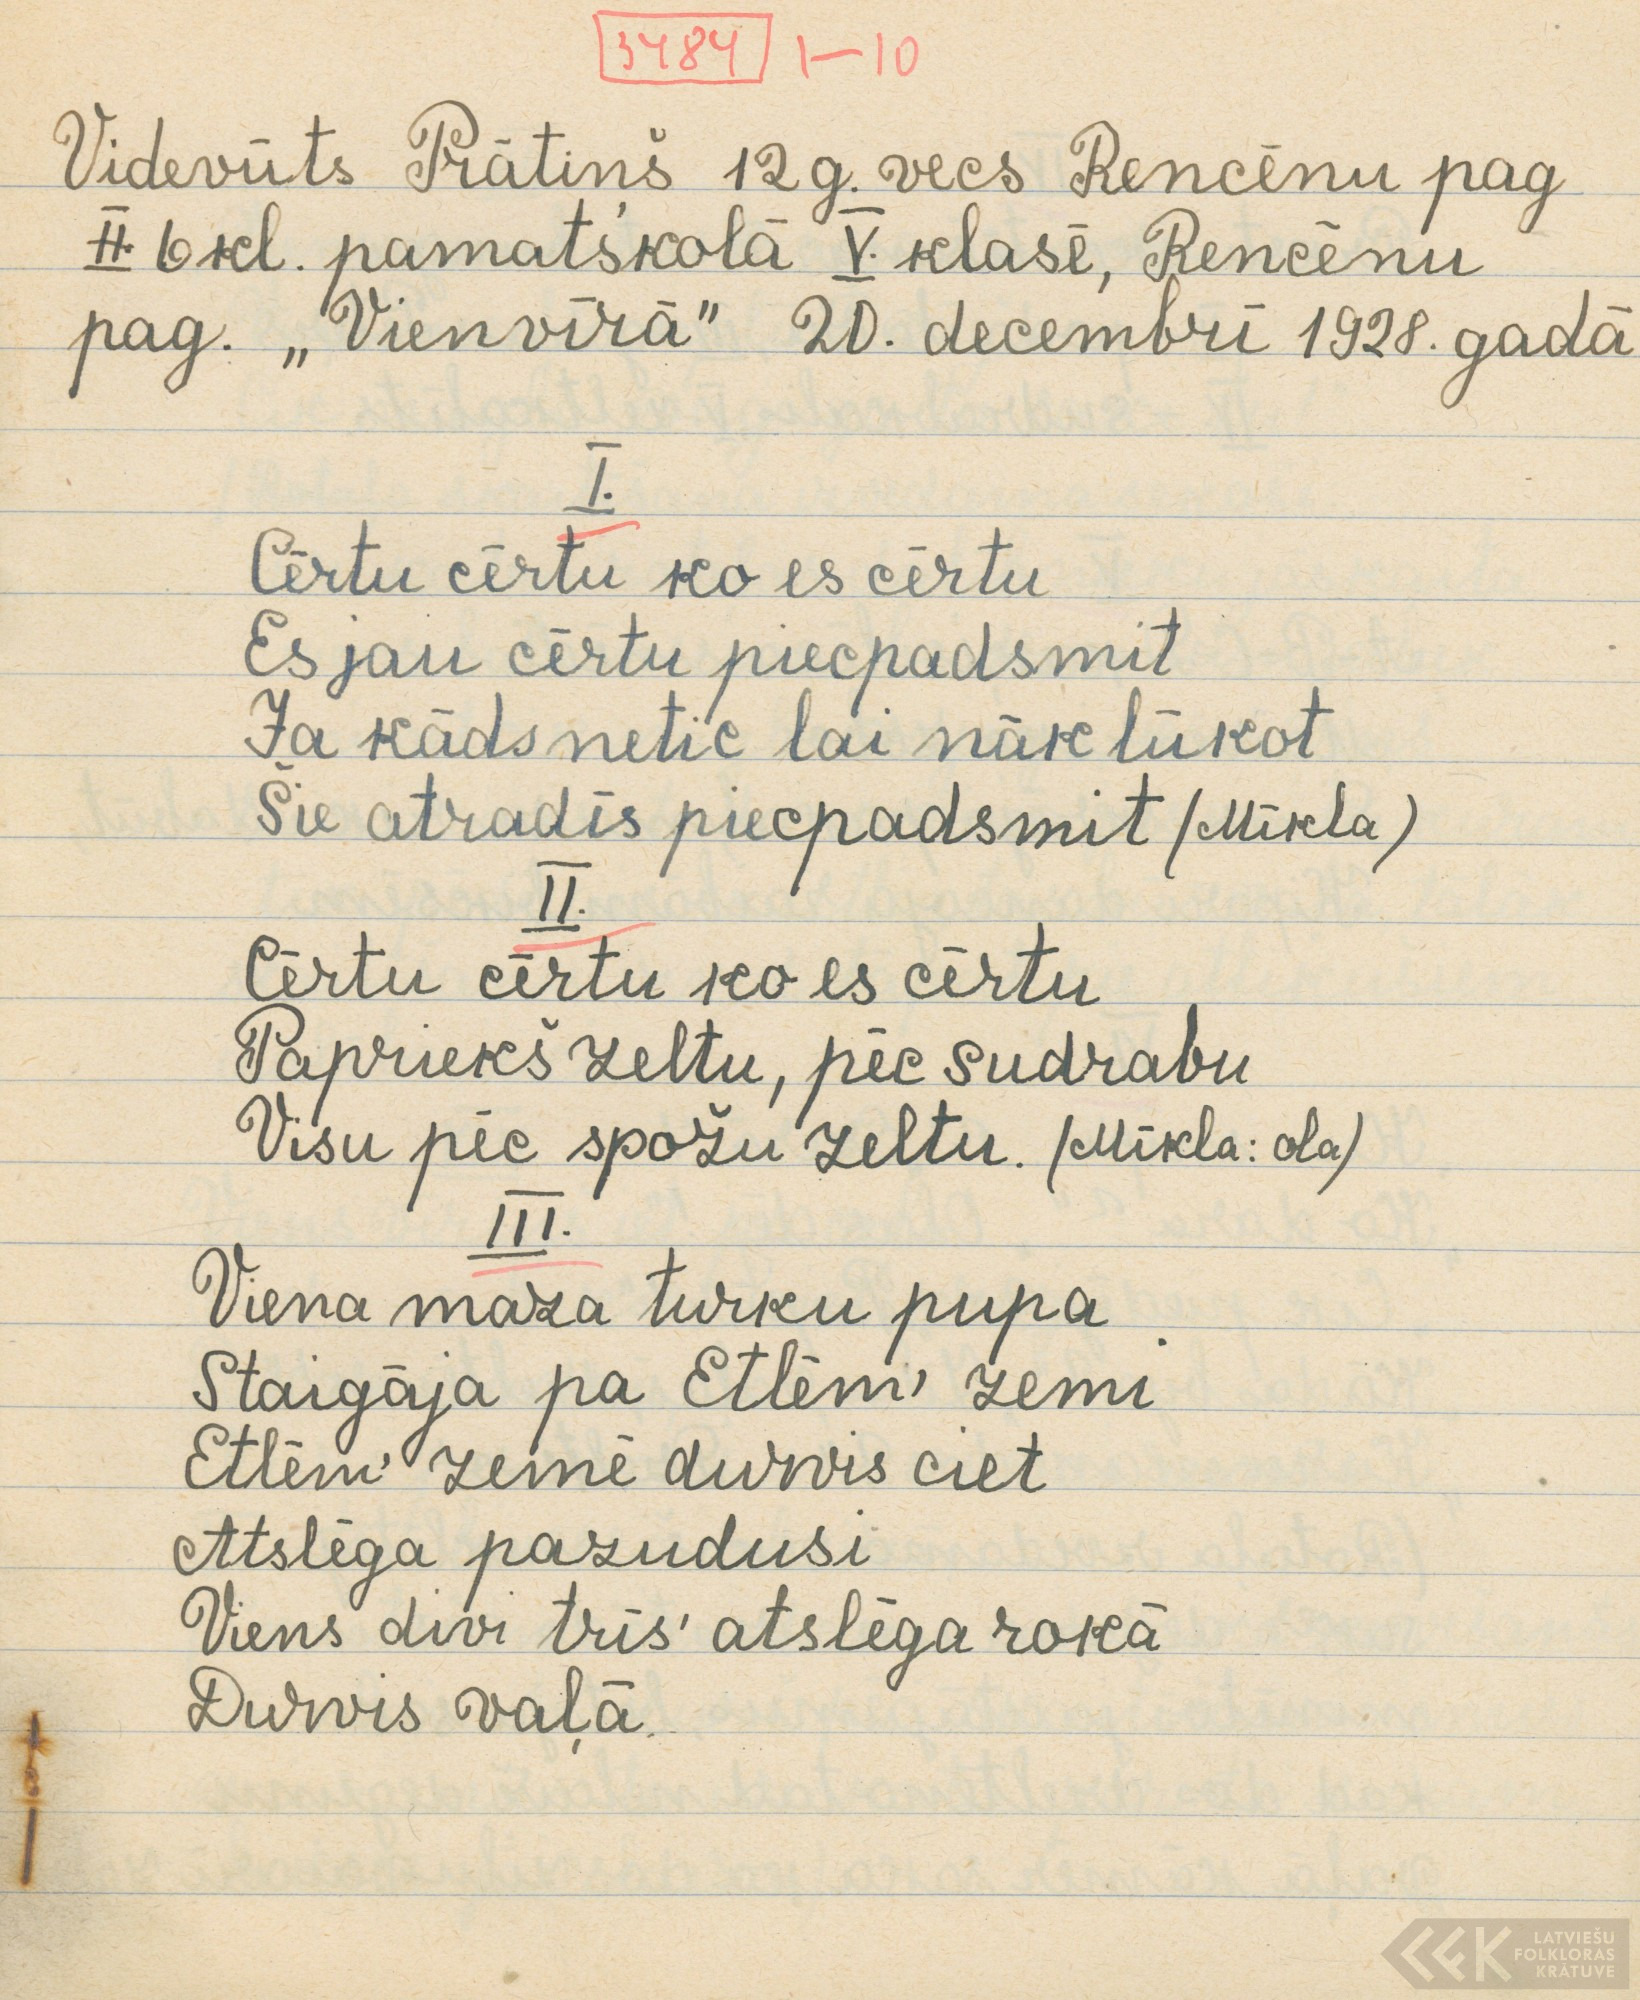 3484 1–10
Videvūts Prātiņš 12 g. vecs Rencēnu pag
II. 6 kl. pamatskolā V. klasē, Rencēnu
pag. „Vienvīrā" 20. decembrī 1928. gadā
I.
Cērtu cērtu ko es cērtu
Es jau cērtu piecpadsmit
Ja kāds netic lai nāk lūkot
Šie atradīs piecpadsmit (Mīkla)
II.
Cērtu cērtu ko es cērtu
Papriekš zeltu, pēc sudrabu
Visu pēc spožu zeltu. (Mīkla: ola)
III.
Viena maza turku pupa
Staigāja pa Etlēm' zemi
Etlēm' zemē durvis ciet
Atslēga pazudusi
Viens divi trīs' atslēga rokā
Durvis vaļā.
LATVIEŠU
FOLKLORAS
KRĀTUVE